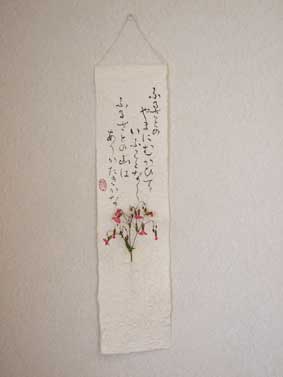 ふるさとの
やまにむかひて
いふことなし
ふるさとの山は
ありがたきかな